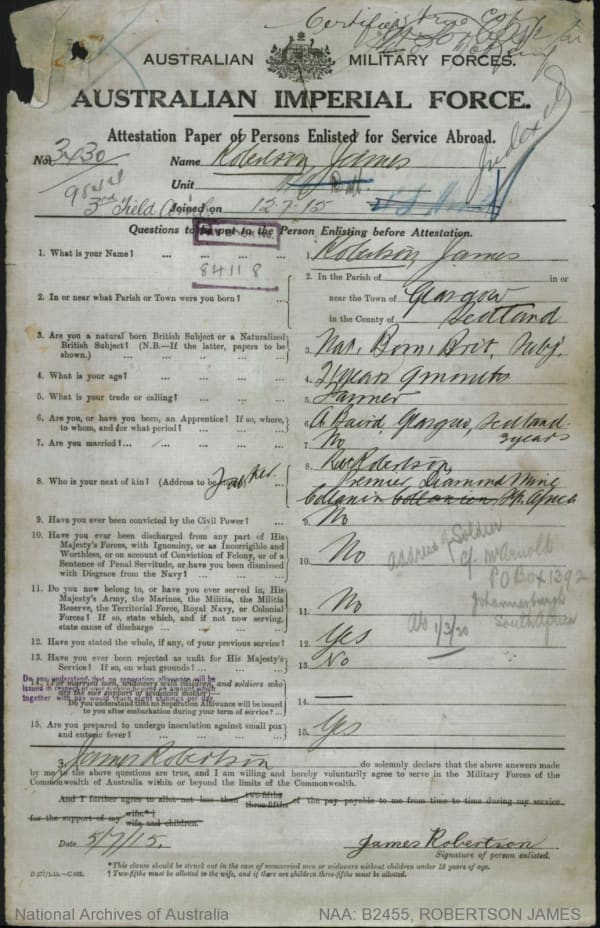 Certified true Copy
AUSTRALIAN MILITARY FORCES.
AUSTRALIAN IMPERIAL FORCE.
Attestation Paper of Persons Enlisted for Service Abroad.
No. 3430 Name Robertson James
Indexed
Unit
3rd Field Joined on 12.7.15
Questions to be put to the Person Enlisting before Attestation.
84118
1. What is your Name? ... ... ... ... 1. Robertson James
2. In or near what Parish or Town were you born? ... 2. In the Parish of in or
near the Town of Glasgow
in the County of Scotland
3. Are you a natural born British Subject or a Naturalized
British Subject? (N.B.—If the latter, papers to be
shown.) ... ... ... ... 3. Nat. Born. Brit. Subj.
4. What is your age? ... ... ... ... 4. 21 years 9 months
5. What is your trade or calling? ... ... ... 5.
6. Are you, or have you been, an Apprentice? If so, where,
to whom, and for what period? ... ... ... 6. David Glasgow, Scotland
3 years
7. Are you married?... ... ... ... 7. No
8. Who is your next of kin? (Address to be Father 8. Robertson
Premier Diamond Mine
Sth Africa
9. Have you ever been convicted by the Civil Power? ... 9. No
10. Have you ever been discharged from any part of His
Majesty's Forces, with Ignominy, or as Incorrigible and
Worthless, or on account of Conviction of Felony, or of a
Sentence of Penal Servitude, or have you been dismissed
with Disgrace from the Navy? ... ... ... 10. No
address of Soldier
c/- W Arnold
PO Box 1392
Johannesburg
South Africa
1/3/20
11. Do you now belong to, or have you ever served in, His
Majesty's Army, the Marines, the Militia, the Militia
Reserve, the Territorial Force, Royal Navy, or Colonial
Forces? If so, state which, and if not now serving,
state cause of discharge ... ... ... 11. No
12. Have you stated the whole, if any, of your previous service? 12. Yes
13. Have you ever been rejected as unfit for His Majesty's
Service? If so, on what grounds? ... ... ... 13. No
Do you understand that no separation allowance will be
issued in respect of your service beyond an amount which
together with pay would reach eight shillings per day.
14. (For married men, widowers with children, and soldiers who
are the sole support of widowed mother)—
Do you understand that no Separation Allowance will be issued
to you after embarkation during your term of service? ... 14. —
15. Are you prepared to undergo inoculation against small pox
and enteric fever? ... ... ... ... 15. Yes
I, James Robertson do solemnly declare that the above answers made
by me to the above questions are true, and I am willing and hereby voluntarily agree to serve in the Military Forces of the
Commonwealth of Australia within or beyond the limits of the Commonwealth.
And I further agree to allot not less than two-fifths three-fifths of the pay payable to me from time to time during my service
for the support of my wife.* † wife and children.
Date 5/7/15. James Robertson
Signature of person enlisted.
*This clause should be struck out in the case of unmarried men or widowers without children under 18 years of age.
† Two-fifths must be allotted to the wife, and if there are children three-fifths must be allotted.
National Archives of Australia NAA: B2455, ROBERTSON JAMES